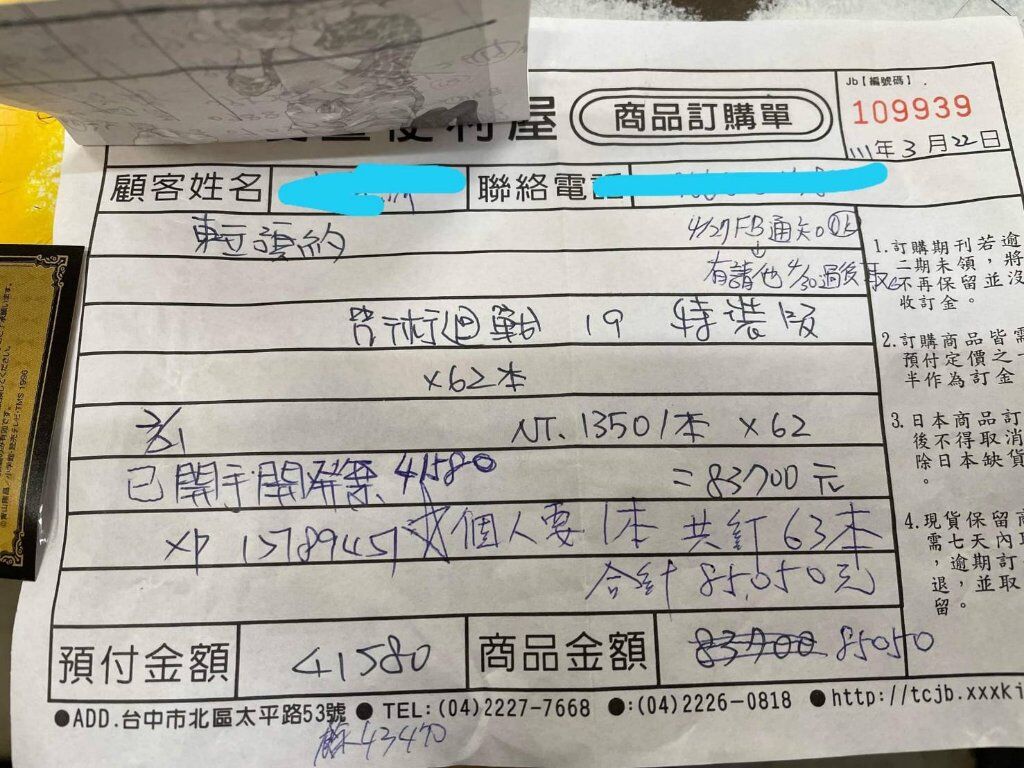 便利屋 商品訂購單
Jb【編號碼】
109939
111年3月22日
顧客姓名 聯絡電話
預約 4/27 FB通知
有請他 4/30過後取
咒術迴戰 19 特裝版
×62本
NT. 1350/本 ×62
已開手開發票 41580 =83700元
15789457 個人要1本 共訂63本
合計85,050元
預付金額 41580 商品金額 83700 85050
●ADD.台中市北區太平路53號 ●TEL:(04)2227-7668 ●:(04)2226-0818 ●http://tcjb.xxxki
餘43470
1.訂購期刊若逾
二期未領，將
不再保留並沒
收訂金。
2.訂購商品皆需
預付定價之一
半作為訂金
3.日本商品訂
後不得取消
除日本缺貨
。
4.現貨保留商
需七天內取
，逾期訂
退，並取
留。